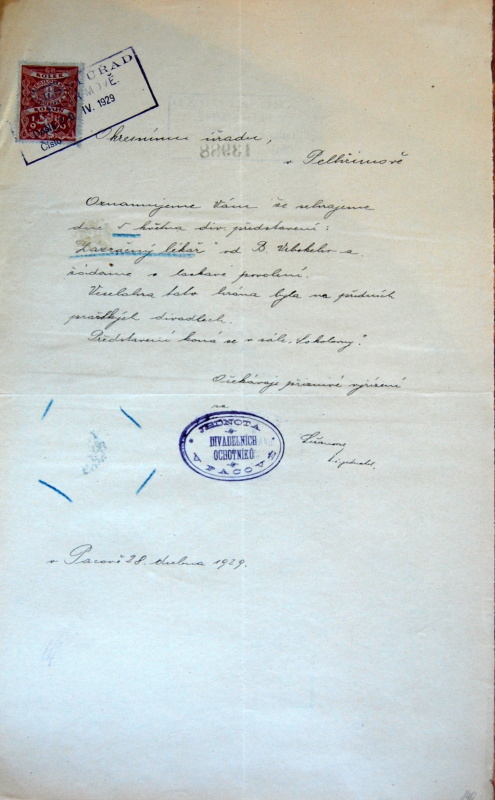 KOLEK
ÚŘAD
IV. 1929
Číslo
Okresnímu úřadu,
v Pelhřimově
13988
Oznamujeme Vám že sehrajeme
dne 5 května div. představení:
"Zázračný lékař" od B. a
žádáme o laskavé povolení.
Veselohra tato hrána byla na předních
pražských divadlech.
Představení koná se v sále "Sokolovny".
Očekávaje příznivé vyřízení
za
JEDNOTA
DIVADELNÍCH
OCHOTNÍKŮ
V PACOVĚ
v Pacově 28. dubna 1929.